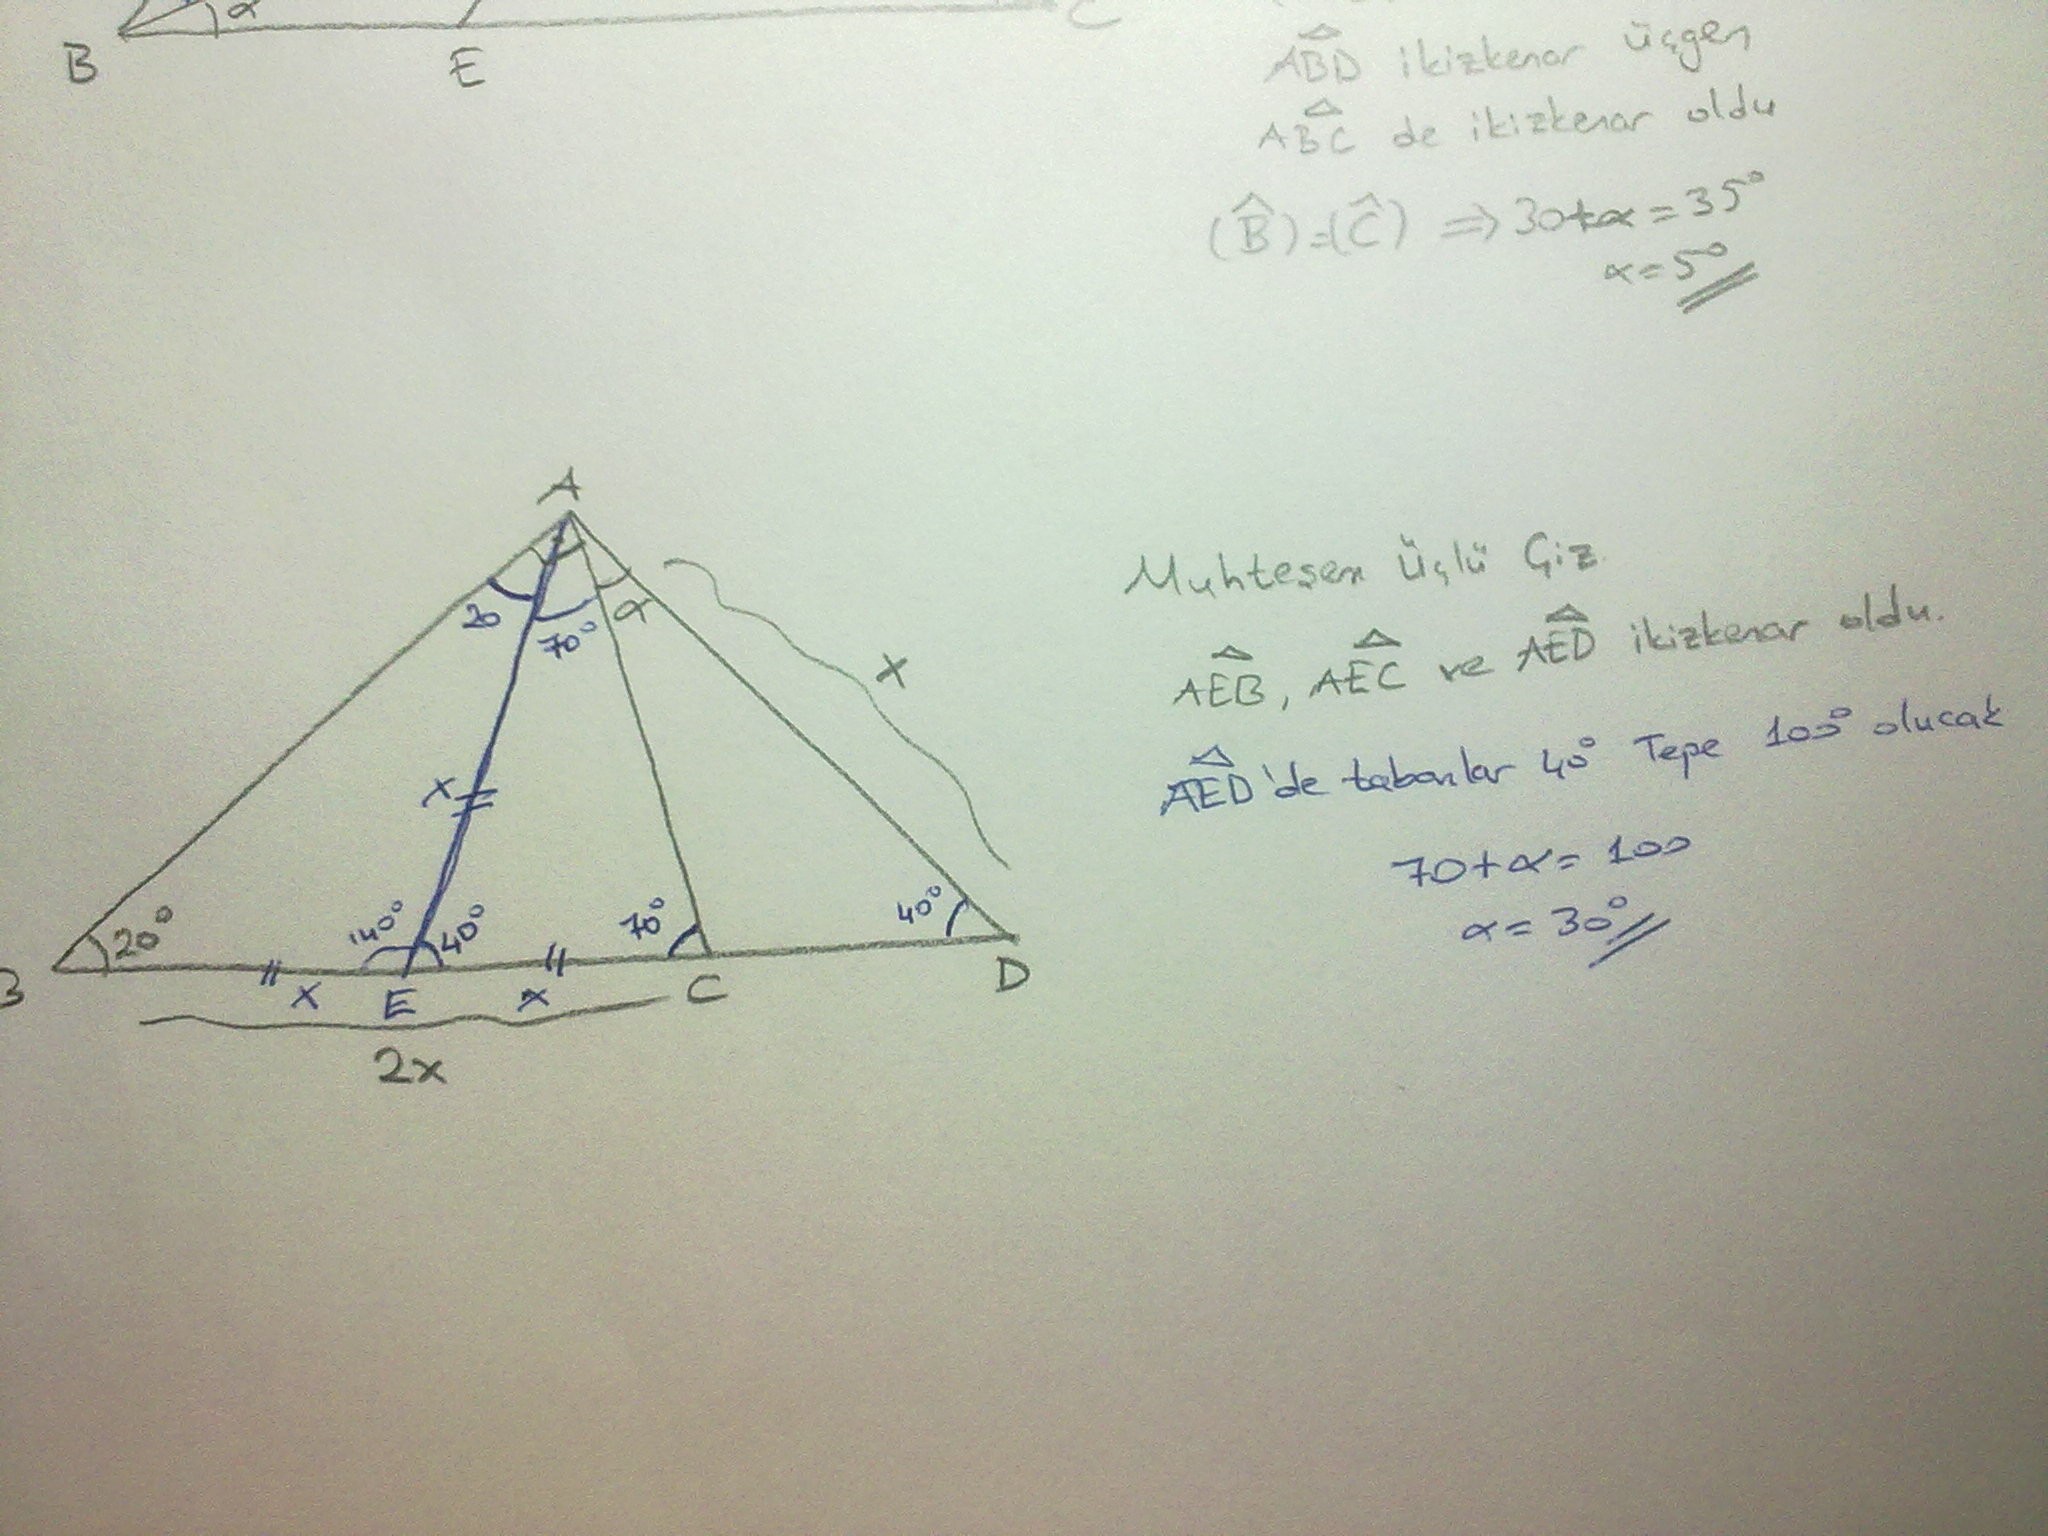 α
B
E
C
ABD ikizkenar üçgen
ABC de ikizkenar oldu
(B̂)=(Ĉ) ⇒ 30+α=35°
α=5°
A
20
70°
α
x
x
20°
140°
40°
70°
40°
B
x
E
x
C
D
2x
Muhteşem Üçlü Çiz.
AEB, AEC ve AED ikizkenar oldu.
AED'de tabanlar 40° Tepe 100° olucak
70+α=100
α=30°